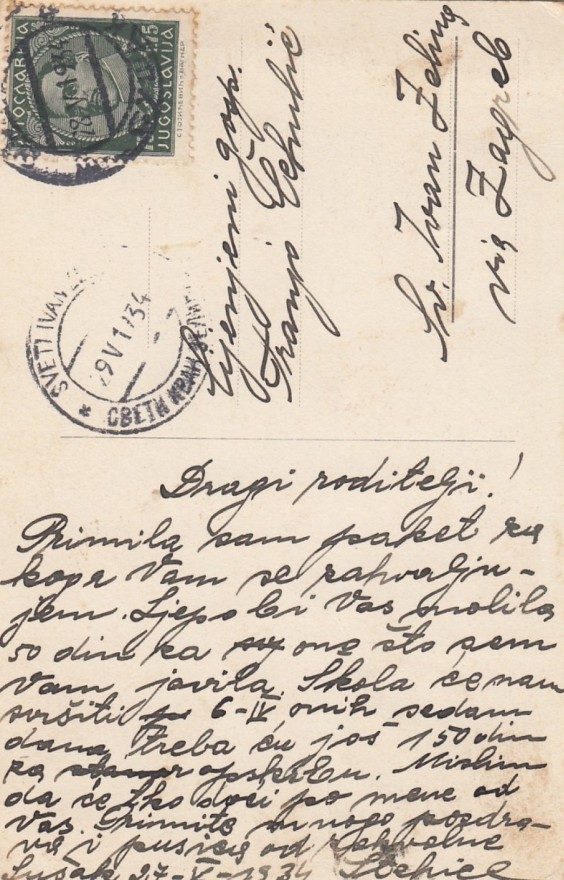 ЈУГОСЛАВИЈА
JUGOSLAVIJA
SVETI IVAN
29 V 1934
СВЕТИ ИВАН ЗЕЛИНА
Cijenjeni gosp.
Franjo
Sv. Ivan Zelina
via Zagreb
Dragi roditelji!
Primila sam paket za
koga Vam se zahvalju-
jem. Ljepo bi Vas molila
50 din za one što sem
Vam javila. Škola će nam
svršiti 6-IV, onih sedam
dana treba ću još 150 din
za opskrbu. Mislim
da će tko doći po mene od
Vas. Primite mnogo pozdra-
va i pusica od zahvalne
Sušak 27-V-1934